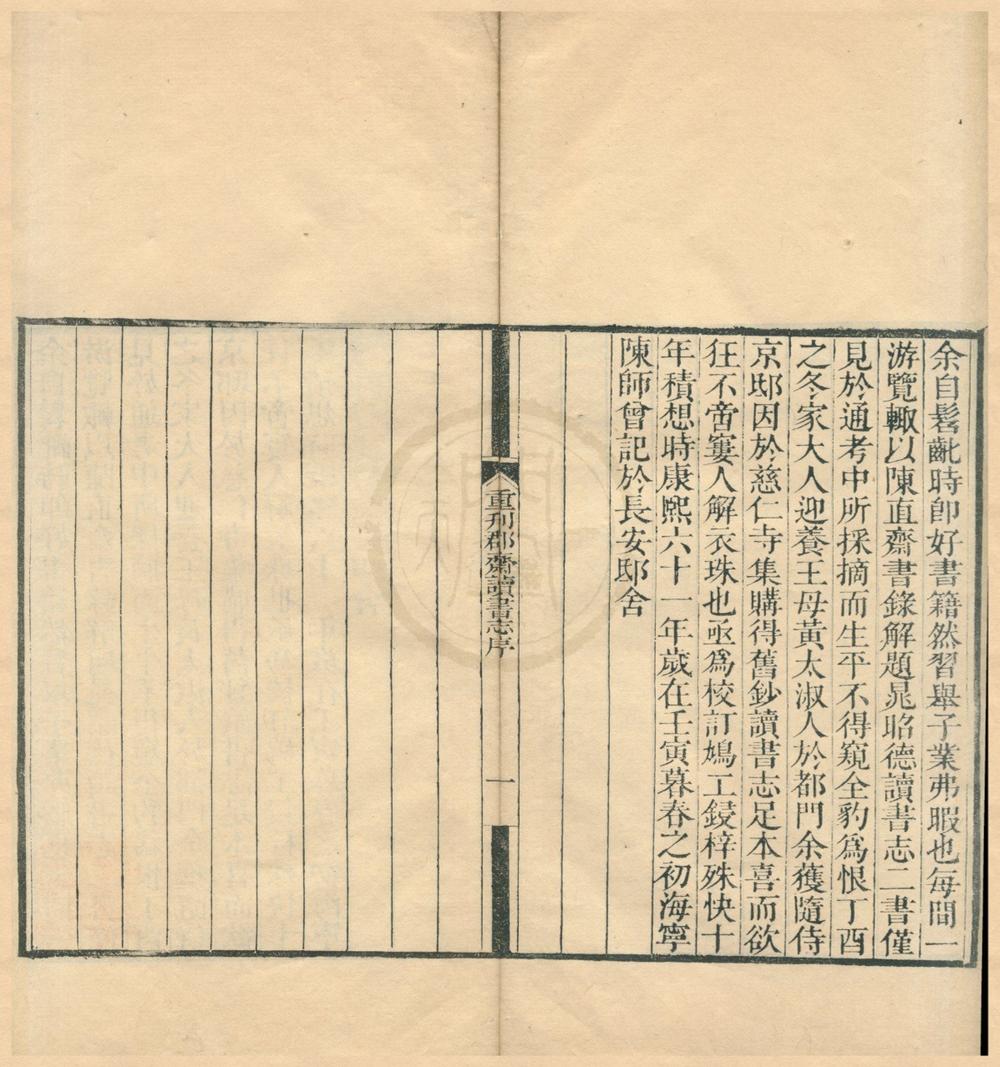 余自髫齔時即好書籍然習舉子業弗暇也每間一
游覽輙以陳直齋書錄解題晁昭德讀書志二書僅
見於通考中所採摘而生平不得窺全豹爲恨丁酉
之冬家大人迎養王母黃太淑人於都門余獲隨侍
京邸因於慈仁寺集購得舊鈔讀書志足本喜而欲
狂不啻窶人解衣珠也亟爲校訂鳩工鋟梓殊快十
年積想時康熙六十一年歲在壬寅暮春之初海寧
陳師曾記於長安邸舍
重刋郡齋讀書志序
一